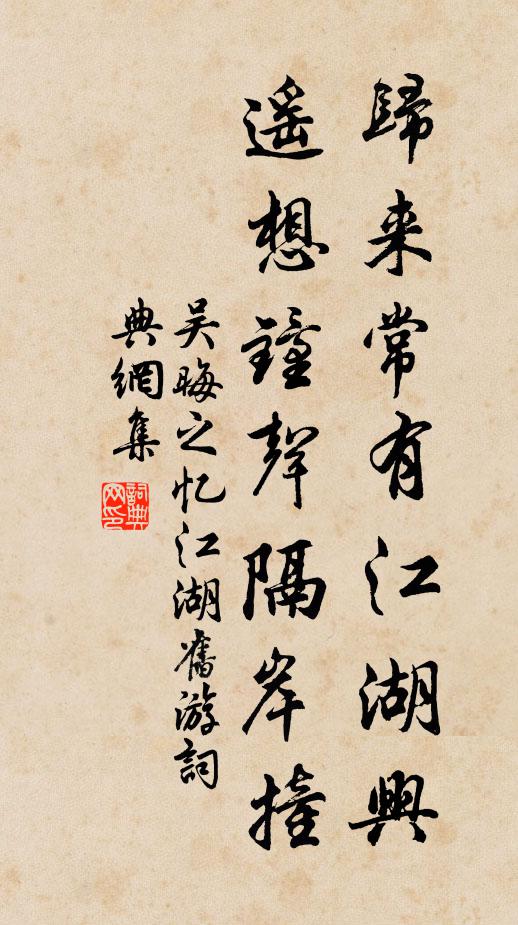 歸来常有江湖興
遥想鐘聲隔岸撞
吴晦之忆江湖舊游詞
典網集
詞典
网印